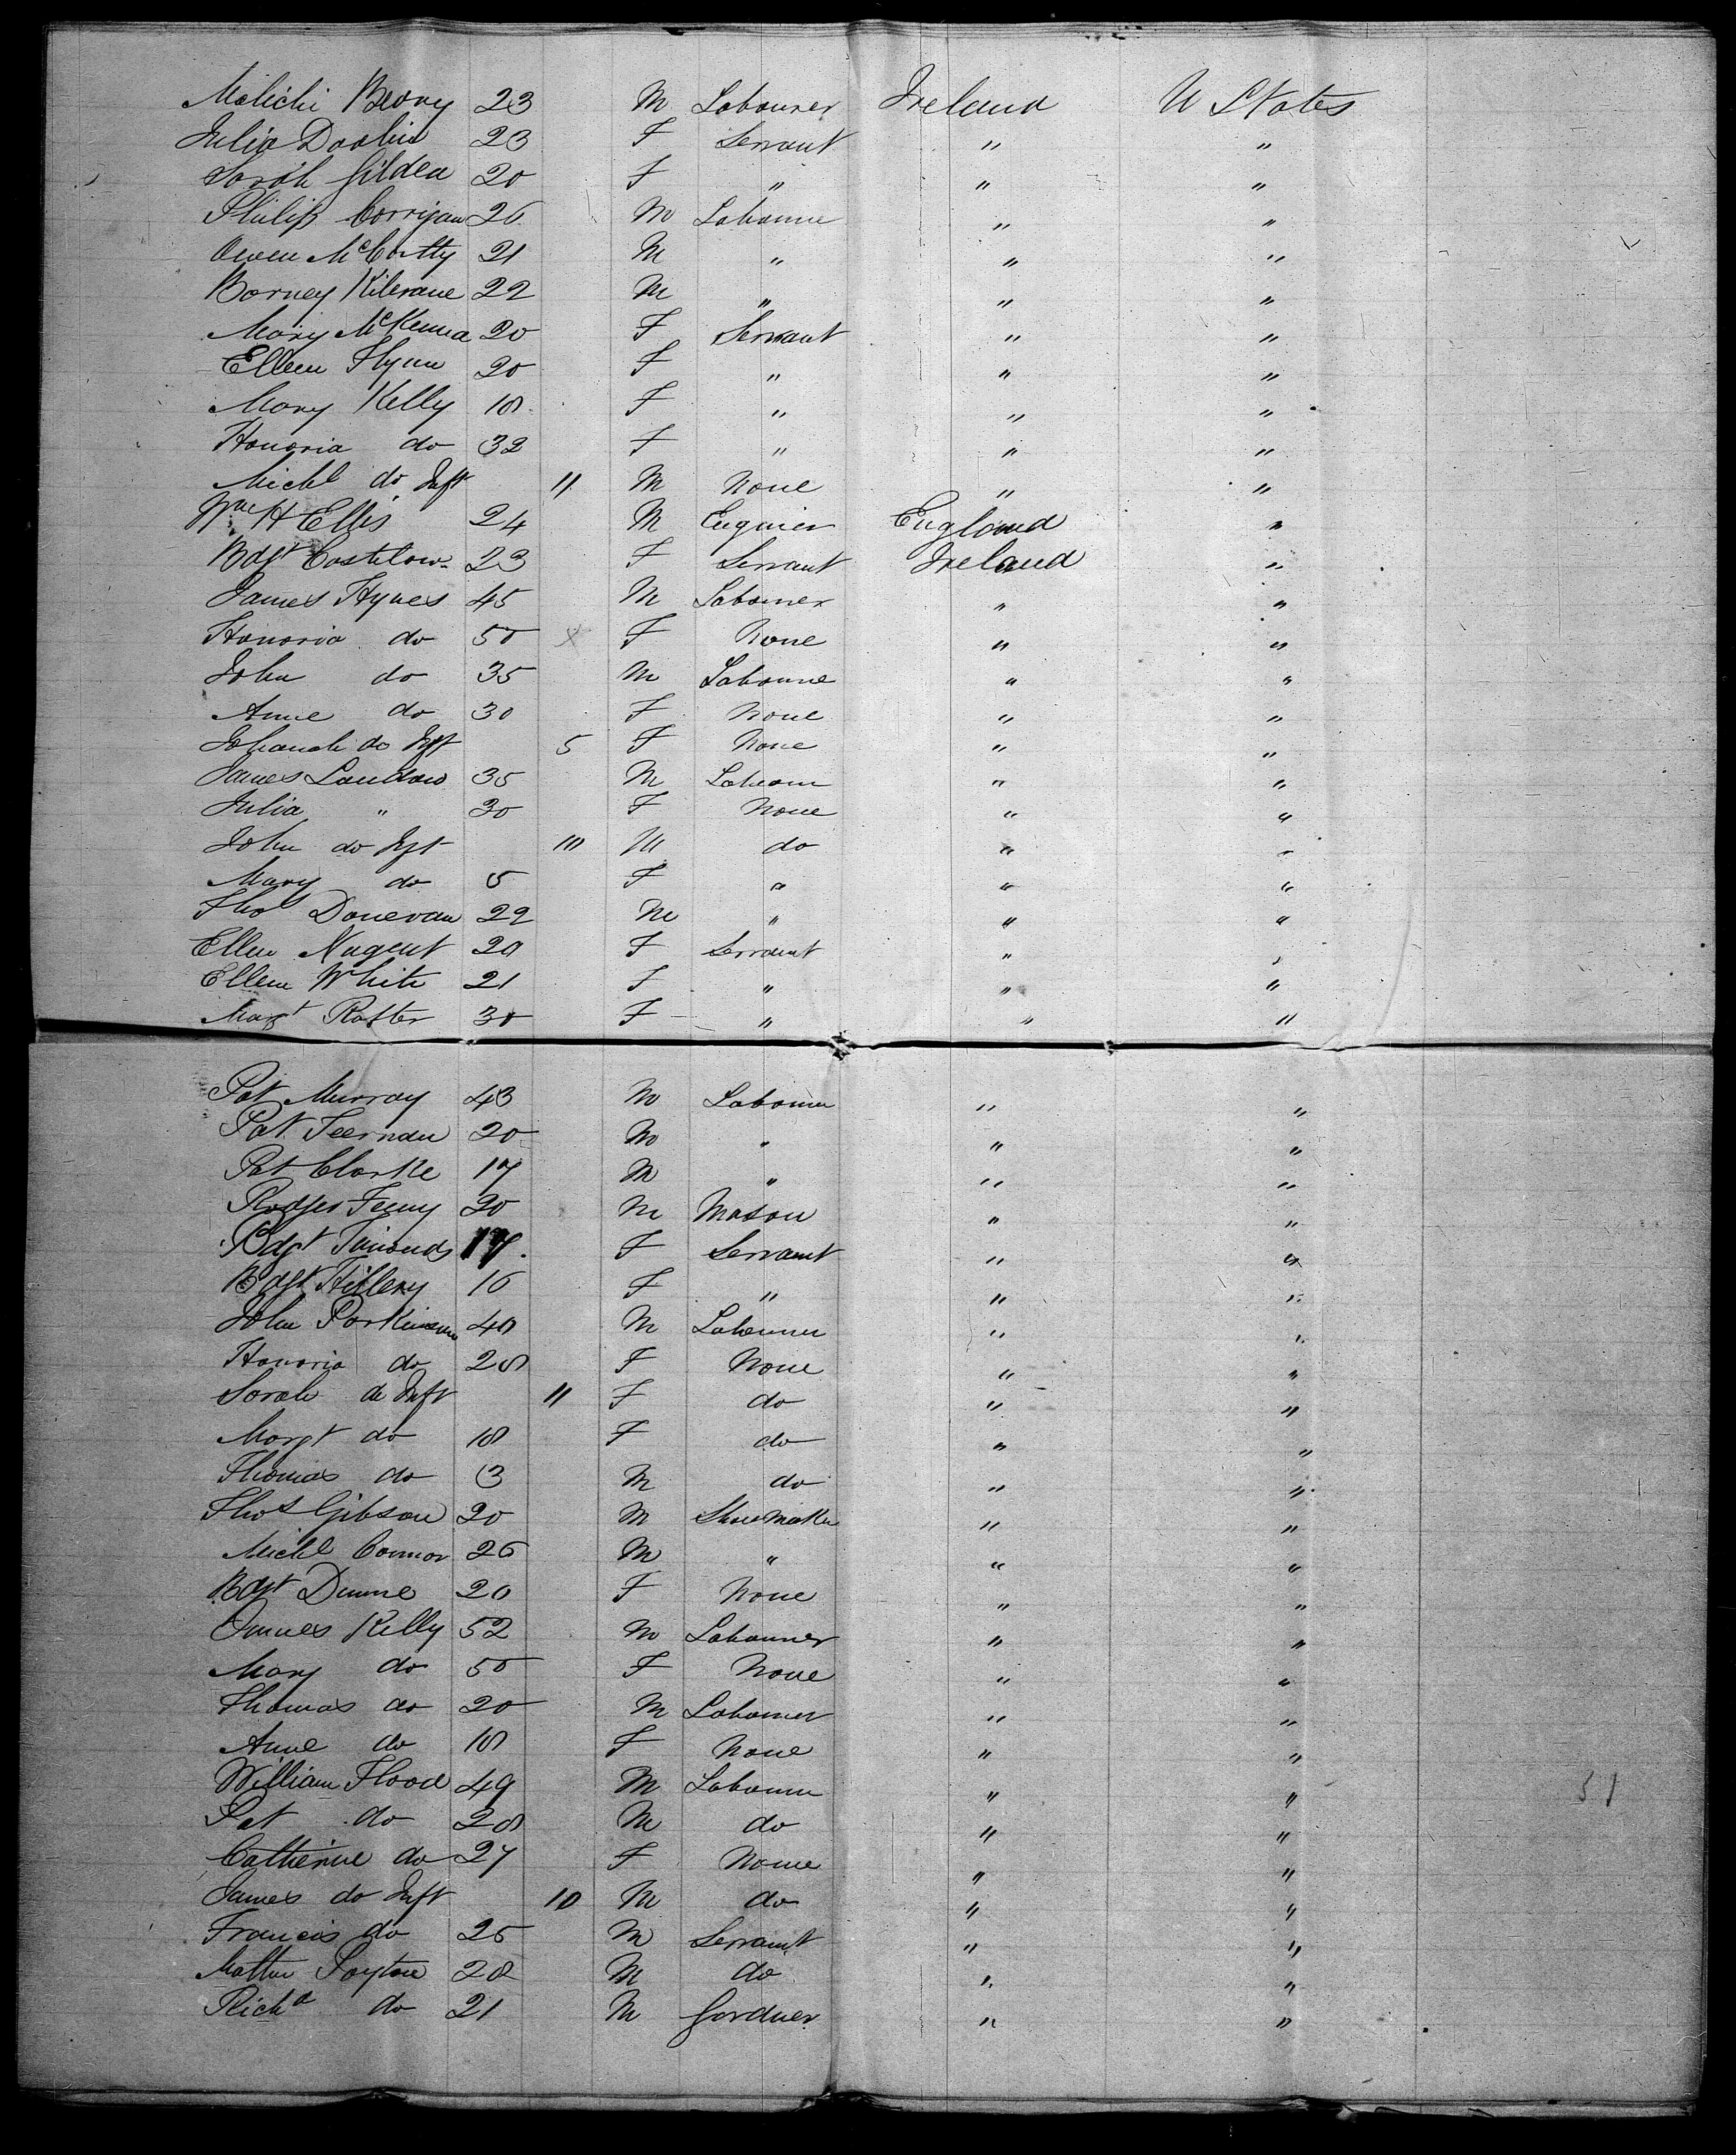 Malichi Beary 23 M Labourer Ireland U States
Julia Doolin 23 F Servant " "
Sarah Gildea 20 F " " "
Philip Corrigan 26 M Labourer " "
Owen McCortty 21 M " " "
Barney Kilerane 22 M " " "
Mary McKenna 20 F Servant " "
Ellen Flynn 20 F " " "
Mary Kelly 18 F " " "
Honoria do 32 F " " "
Michl do Inft 11 M None " "
Wm H Ellis 24 M Enguier England "
Bdgt Costelow 23 F Servant Ireland "
James Hynes 45 M Labourer " "
Honoria do 50 x F None " "
John do 35 M Labourer " "
Anne do 30 F None " "
Johanah do Inft 5 F None " "
James Landow 35 M Labour " "
Julia " 30 F None " "
John do Inft 10 M do " "
Mary do 5 F " " "
Thos Donevan 22 M " " "
Ellen Nugent 20 F Servant " "
Ellen White 21 F " " "
Margt Rafter 30 F " " "
Pat Murray 43 M Labourer " "
Pat 20 M " " "
Pat Clarke 17 M " " "
Rodger Feeny 20 M Mason " "
Bdgt Timonds 17 F Servant " "
Bdgt Hillery 16 F " " "
John Parkinson 40 M Labourer " "
Honoria do 28 F None " "
Sarah do Inft 11 F do " "
Margt do 18 F do " "
Thomas do 3 M do " "
Thos Gibson 20 M Shoe Maker " "
Michl Connor 26 M " " "
Bdgt Dunne 20 F None " "
James Kelly 52 M Labourer " "
Mary do 50 F None " "
Thomas do 20 M Labourer " "
Anne do 18 F None " "
William Flood 49 M Labourer " "
Pat do 28 M do " "
Catherine do 27 F None " "
James do Inft 10 M do " "
Francis do 25 M Servant " "
Mattw Peyton 28 M do " "
Richd do 21 M Gardner " "
51